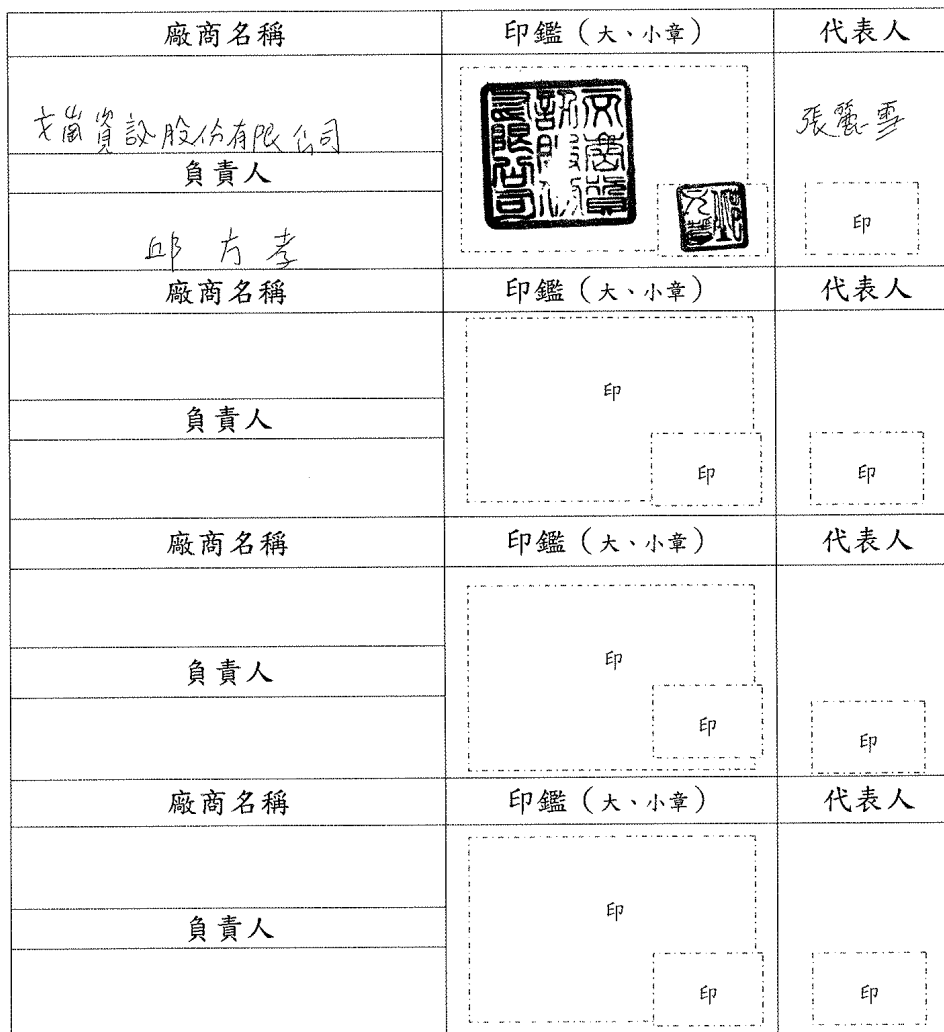 廠商名稱 印鑑（大、小章） 代表人
文崗資訊股份有限公司 張麗雪
負責人
印
邱方孝
廠商名稱 印鑑（大、小章） 代表人
印
負責人
印 印
廠商名稱 印鑑（大、小章） 代表人
印
負責人
印 印
廠商名稱 印鑑（大、小章） 代表人
印
負責人
印 印